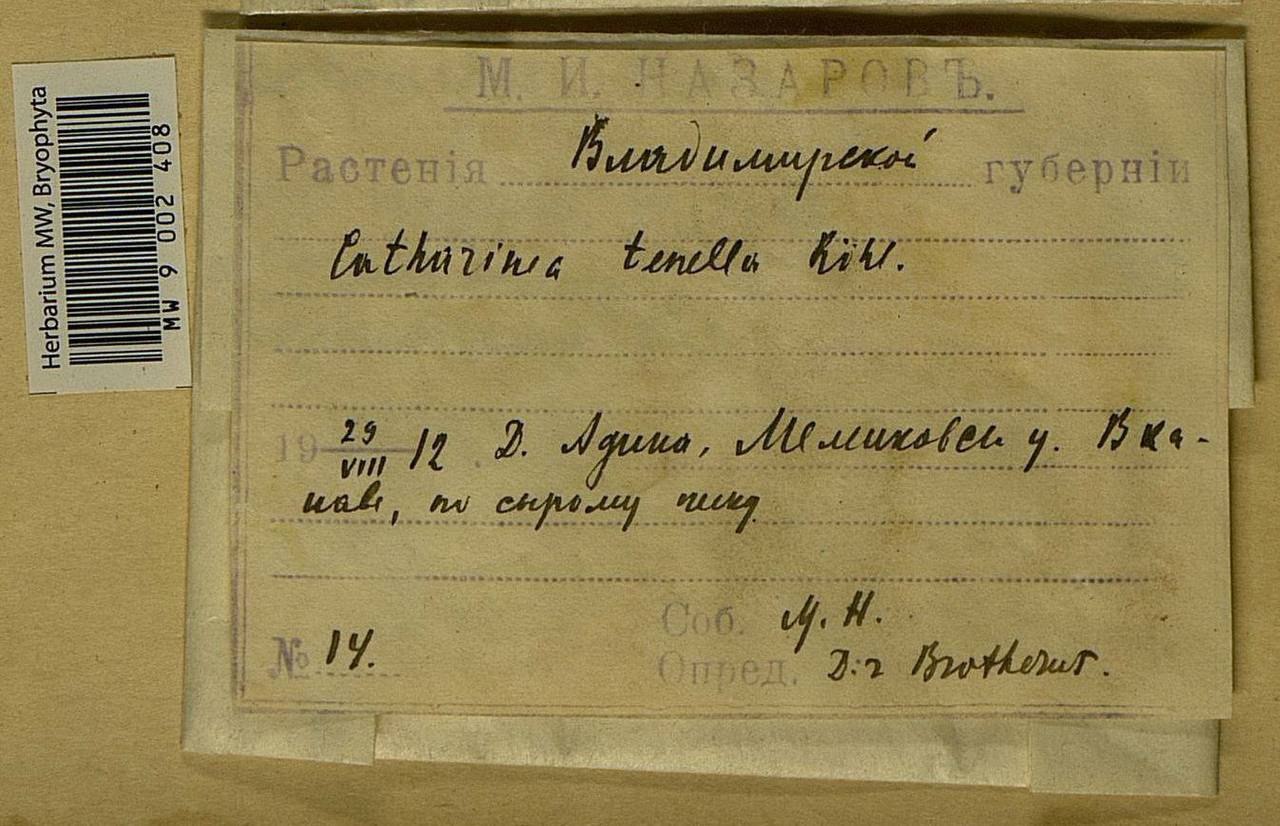 Herbarium MW, Bryophyta
MW 9 002 408
М. И. НАЗАРОВЪ.
Растенія Владимирской губерніи
Catharinea tenella Röhl.
19 29/VIII 12 Д. Адино, Меленковск у. В ка-
наве, по сырому песку
№ 14.
Соб. М. Н.
Опред. D:r Brotherus.